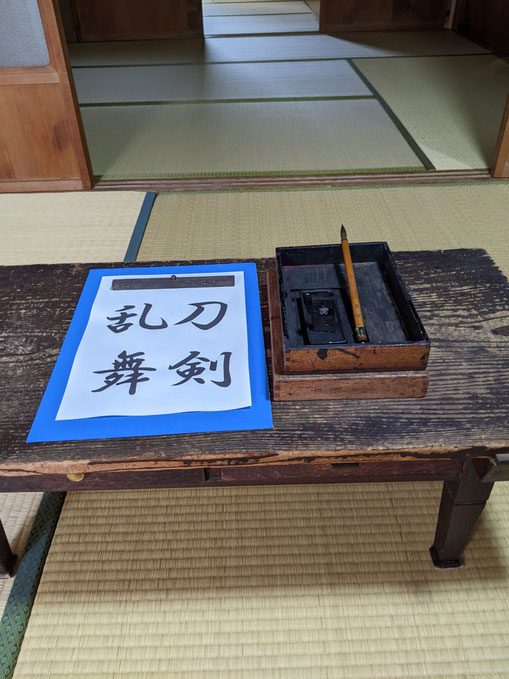 刀剣
乱舞